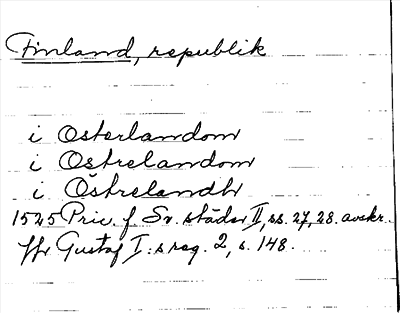 Finland, republik
i Osterlandom
i Ostrelandom
i Östrelandh
1525 Priv. f Sv. städer II, ss. 27, 28. avskr.
jfr Gustaf I:s reg. 2, s. 148.